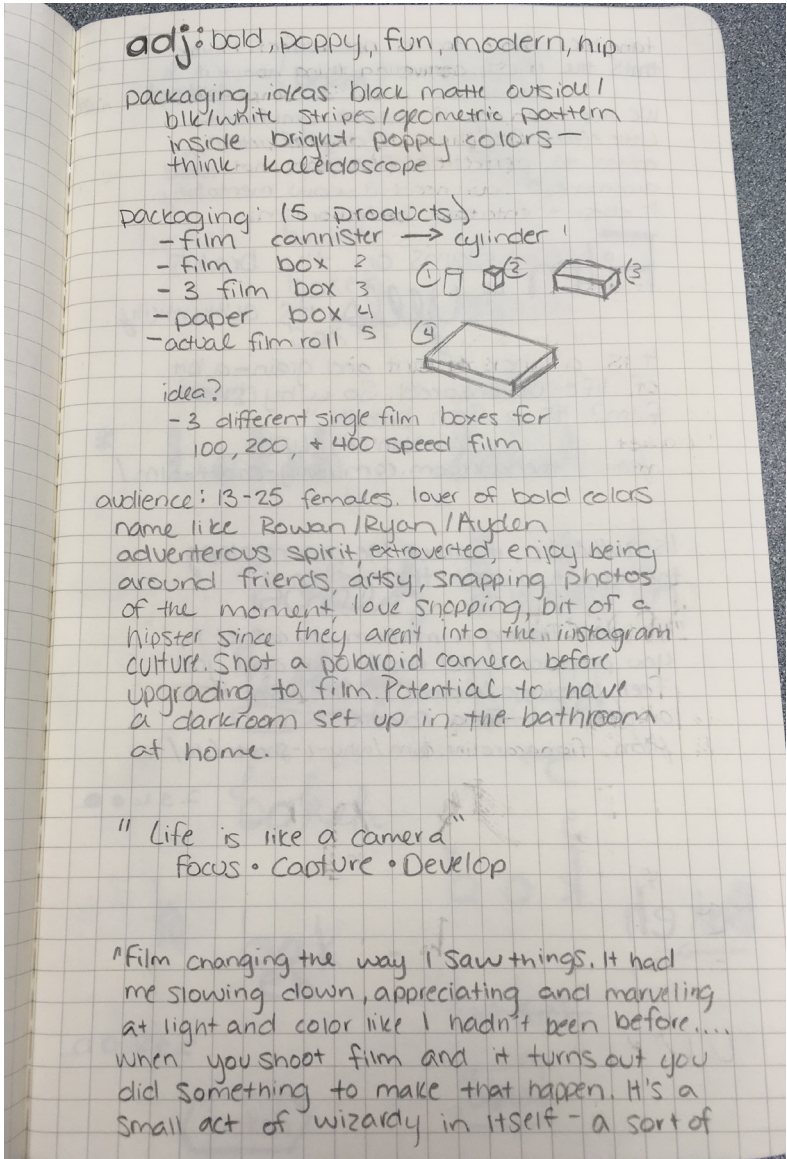 adj: bold, poppy, fun, modern, hip
packaging ideas: black matte outside/
blk/white stripes/geometric pattern
inside bright poppy colors—
think kaleidoscope
packaging: (5 products)
- film cannister → cylinder 1
- film box 2
- 3 film box 3
- paper box 4
- actual film roll 5
1 2 3
4
idea?
- 3 different single film boxes for
100, 200, + 400 speed film
audience: 13-25 females. lover of bold colors
name like Rowan/Ryan/Ayden
adventerous spirit, extroverted, enjoy being
around friends, artsy, snapping photos
of the moment, love shopping, bit of a
hipster since they arent into the "instagram"
culture. Shot a polaroid camera before
upgrading to film. Potential to have
a darkroom set up in the bathroom
at home.
"Life is like a camera"
Focus • Capture • Develop
"Film changing the way I saw things. It had
me slowing down, appreciating and marveling
at light and color like I hadn't been before....
when you shoot film and it turns out you
did something to make that happen. It's a
small act of wizardy in itself - a sort of